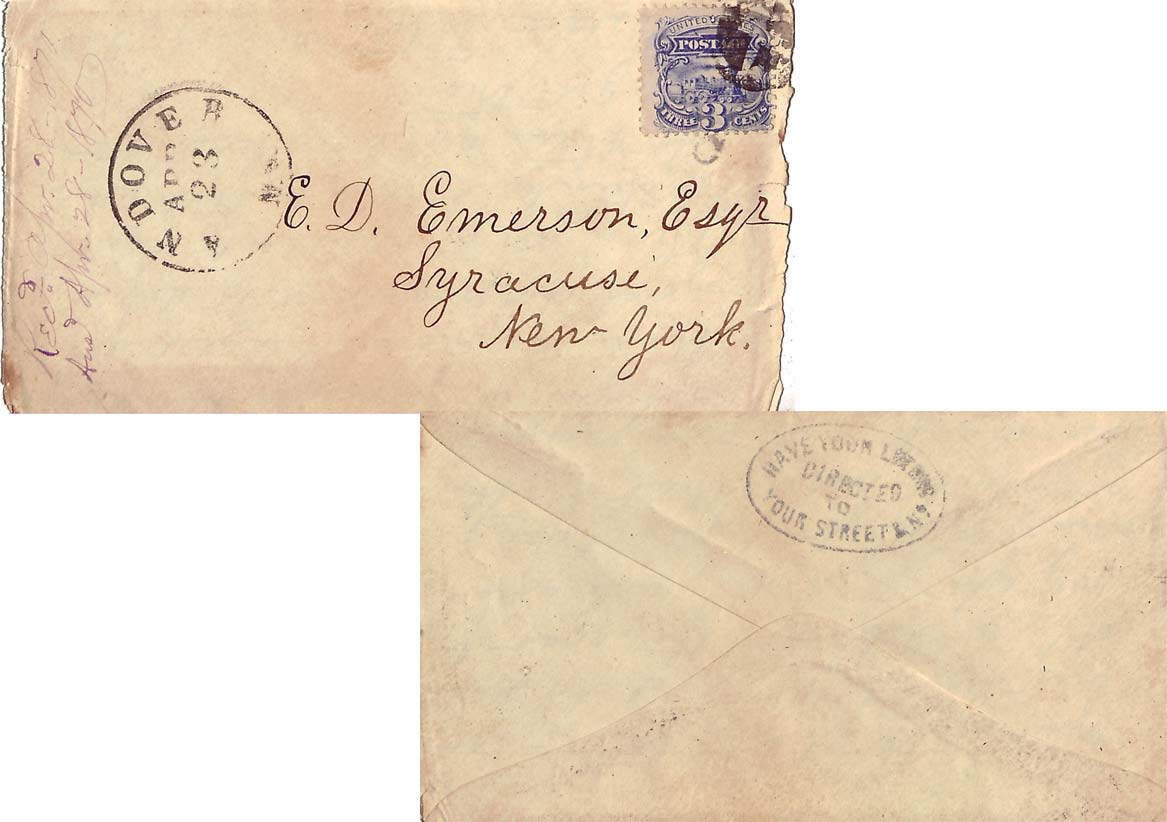 UNITED STATES
POSTAGE
THREE 3 CENTS
ANDOVER
APR
23
E. D. Emerson, Esqr
Syracuse,
New York.
Rec'd Apr. 28-1871
Ans'd Apr 28-1870
HAVE YOUR LETTERS
DIRECTED
TO
YOUR STREET & No